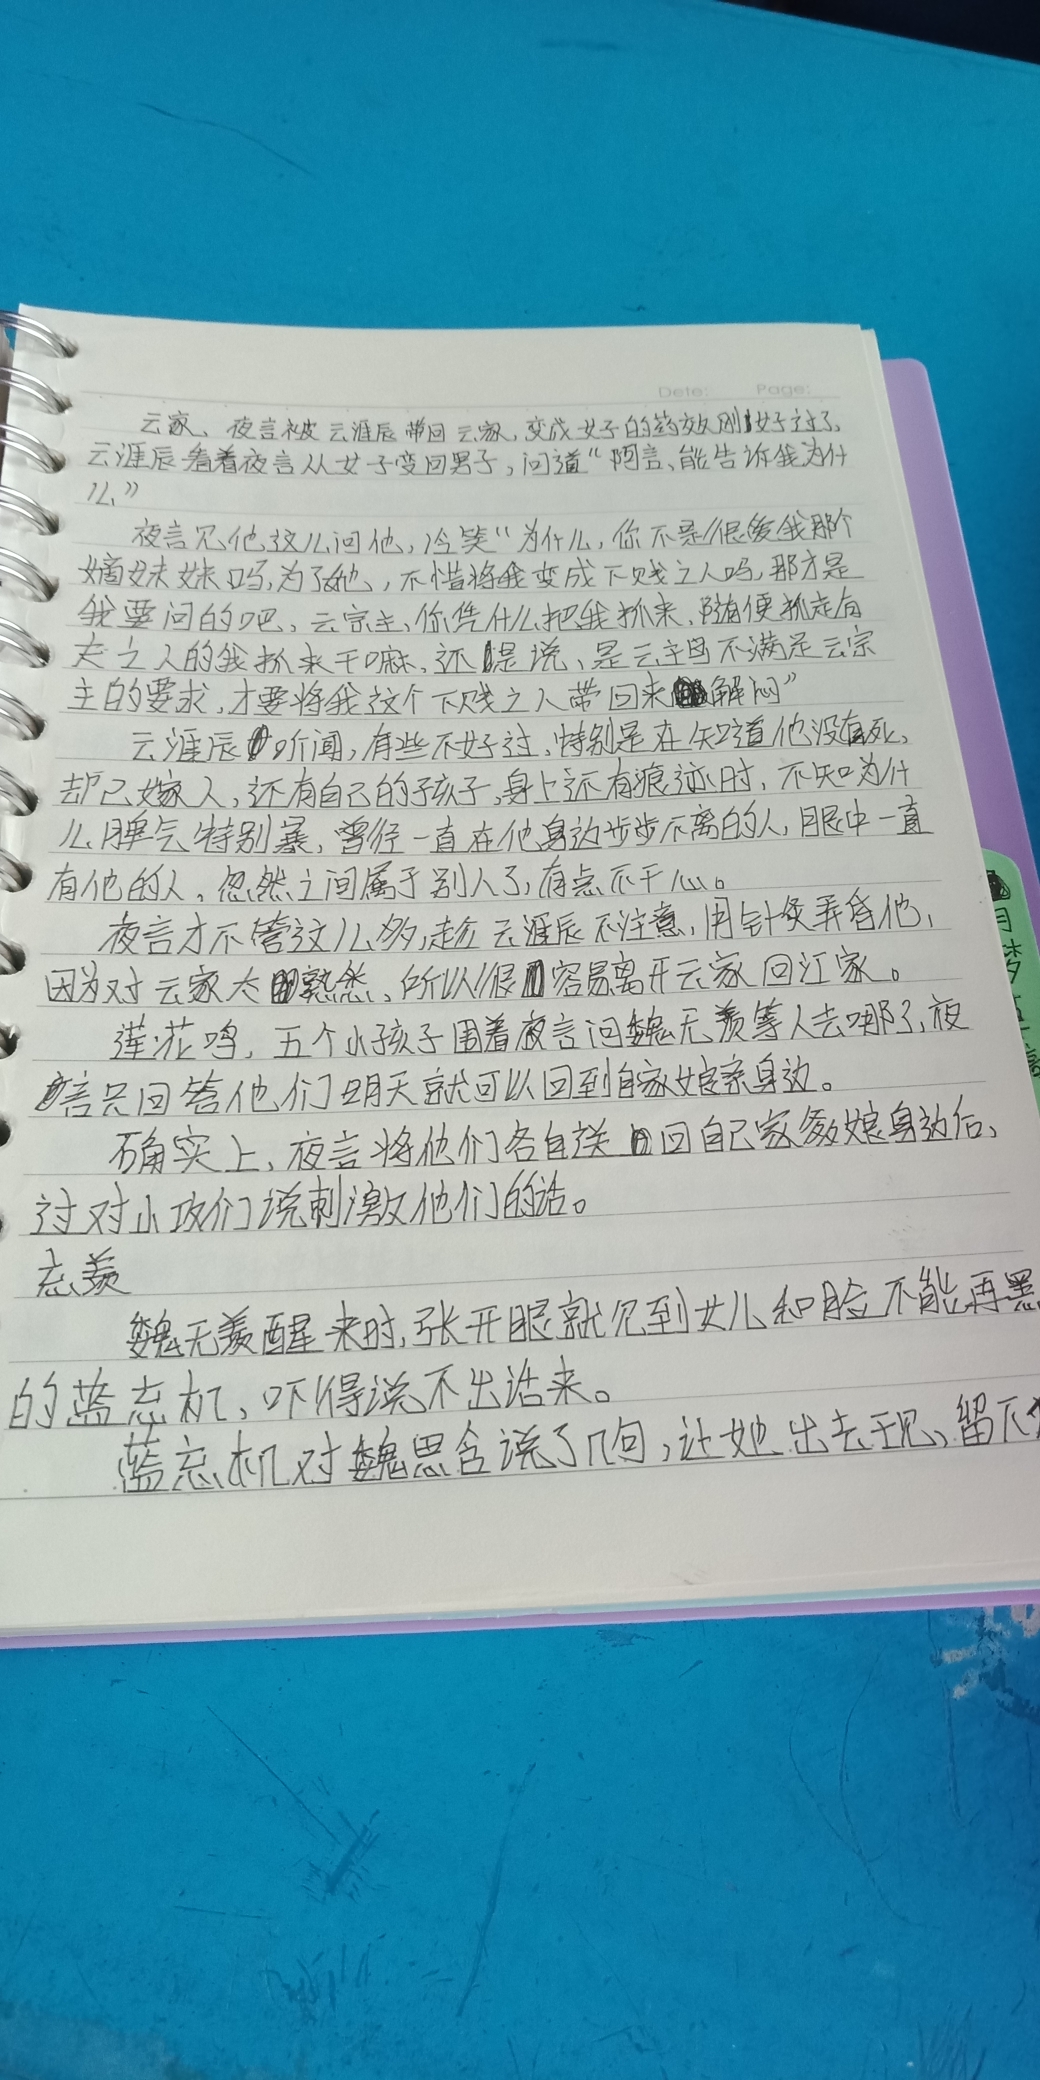 Date: Page:
云家、夜言被云涯辰带回云家,变成女子的药效刚好过了,
云涯辰看着夜言从女子变回男子,问道“阿言、能告诉我为什
么”
夜言见他这么问他,冷笑“为什么,你不是很爱我那个
嫡妹妹吗,为了她、,不惜将我变成下贱之人吗,那才是
我要问的吧、云宗主,你凭什么把我抓来,随便抓走有
夫之人的我抓来干嘛、还是说、是云主母不满足云宗
主的要求,才要将我这个下贱之人带回来解闷”
云涯辰听闻,有些不好过,特别是在知道他没有死,
却已嫁人,还有自己的孩子,身上还有痕迹时,不知为什
么脾气特别暴,曾经一直在他身边步步不离的人,眼中一直
有他的人,忽然之间属于别人了,有点不干心。
夜言才不管这么多,趁云涯辰不注意,用针灸弄昏他,
因为对云家太熟然,所以很容易离开云家回江家。
莲花鸣,五个小孩子围着夜言问魏无羡等人去哪了,夜
言只回答他们明天就可以回到自家娘亲身边。
确实上,夜言将他们各自送回自己家爹娘身边后,
过对小攻们说刺激他们的话。
忘羡
魏无羡醒来时,张开眼就见到女儿和脸不能再黑
的蓝忘机,吓得说不出话来。
蓝忘机对魏思含说了几句,让她出去玩,留下
月梦